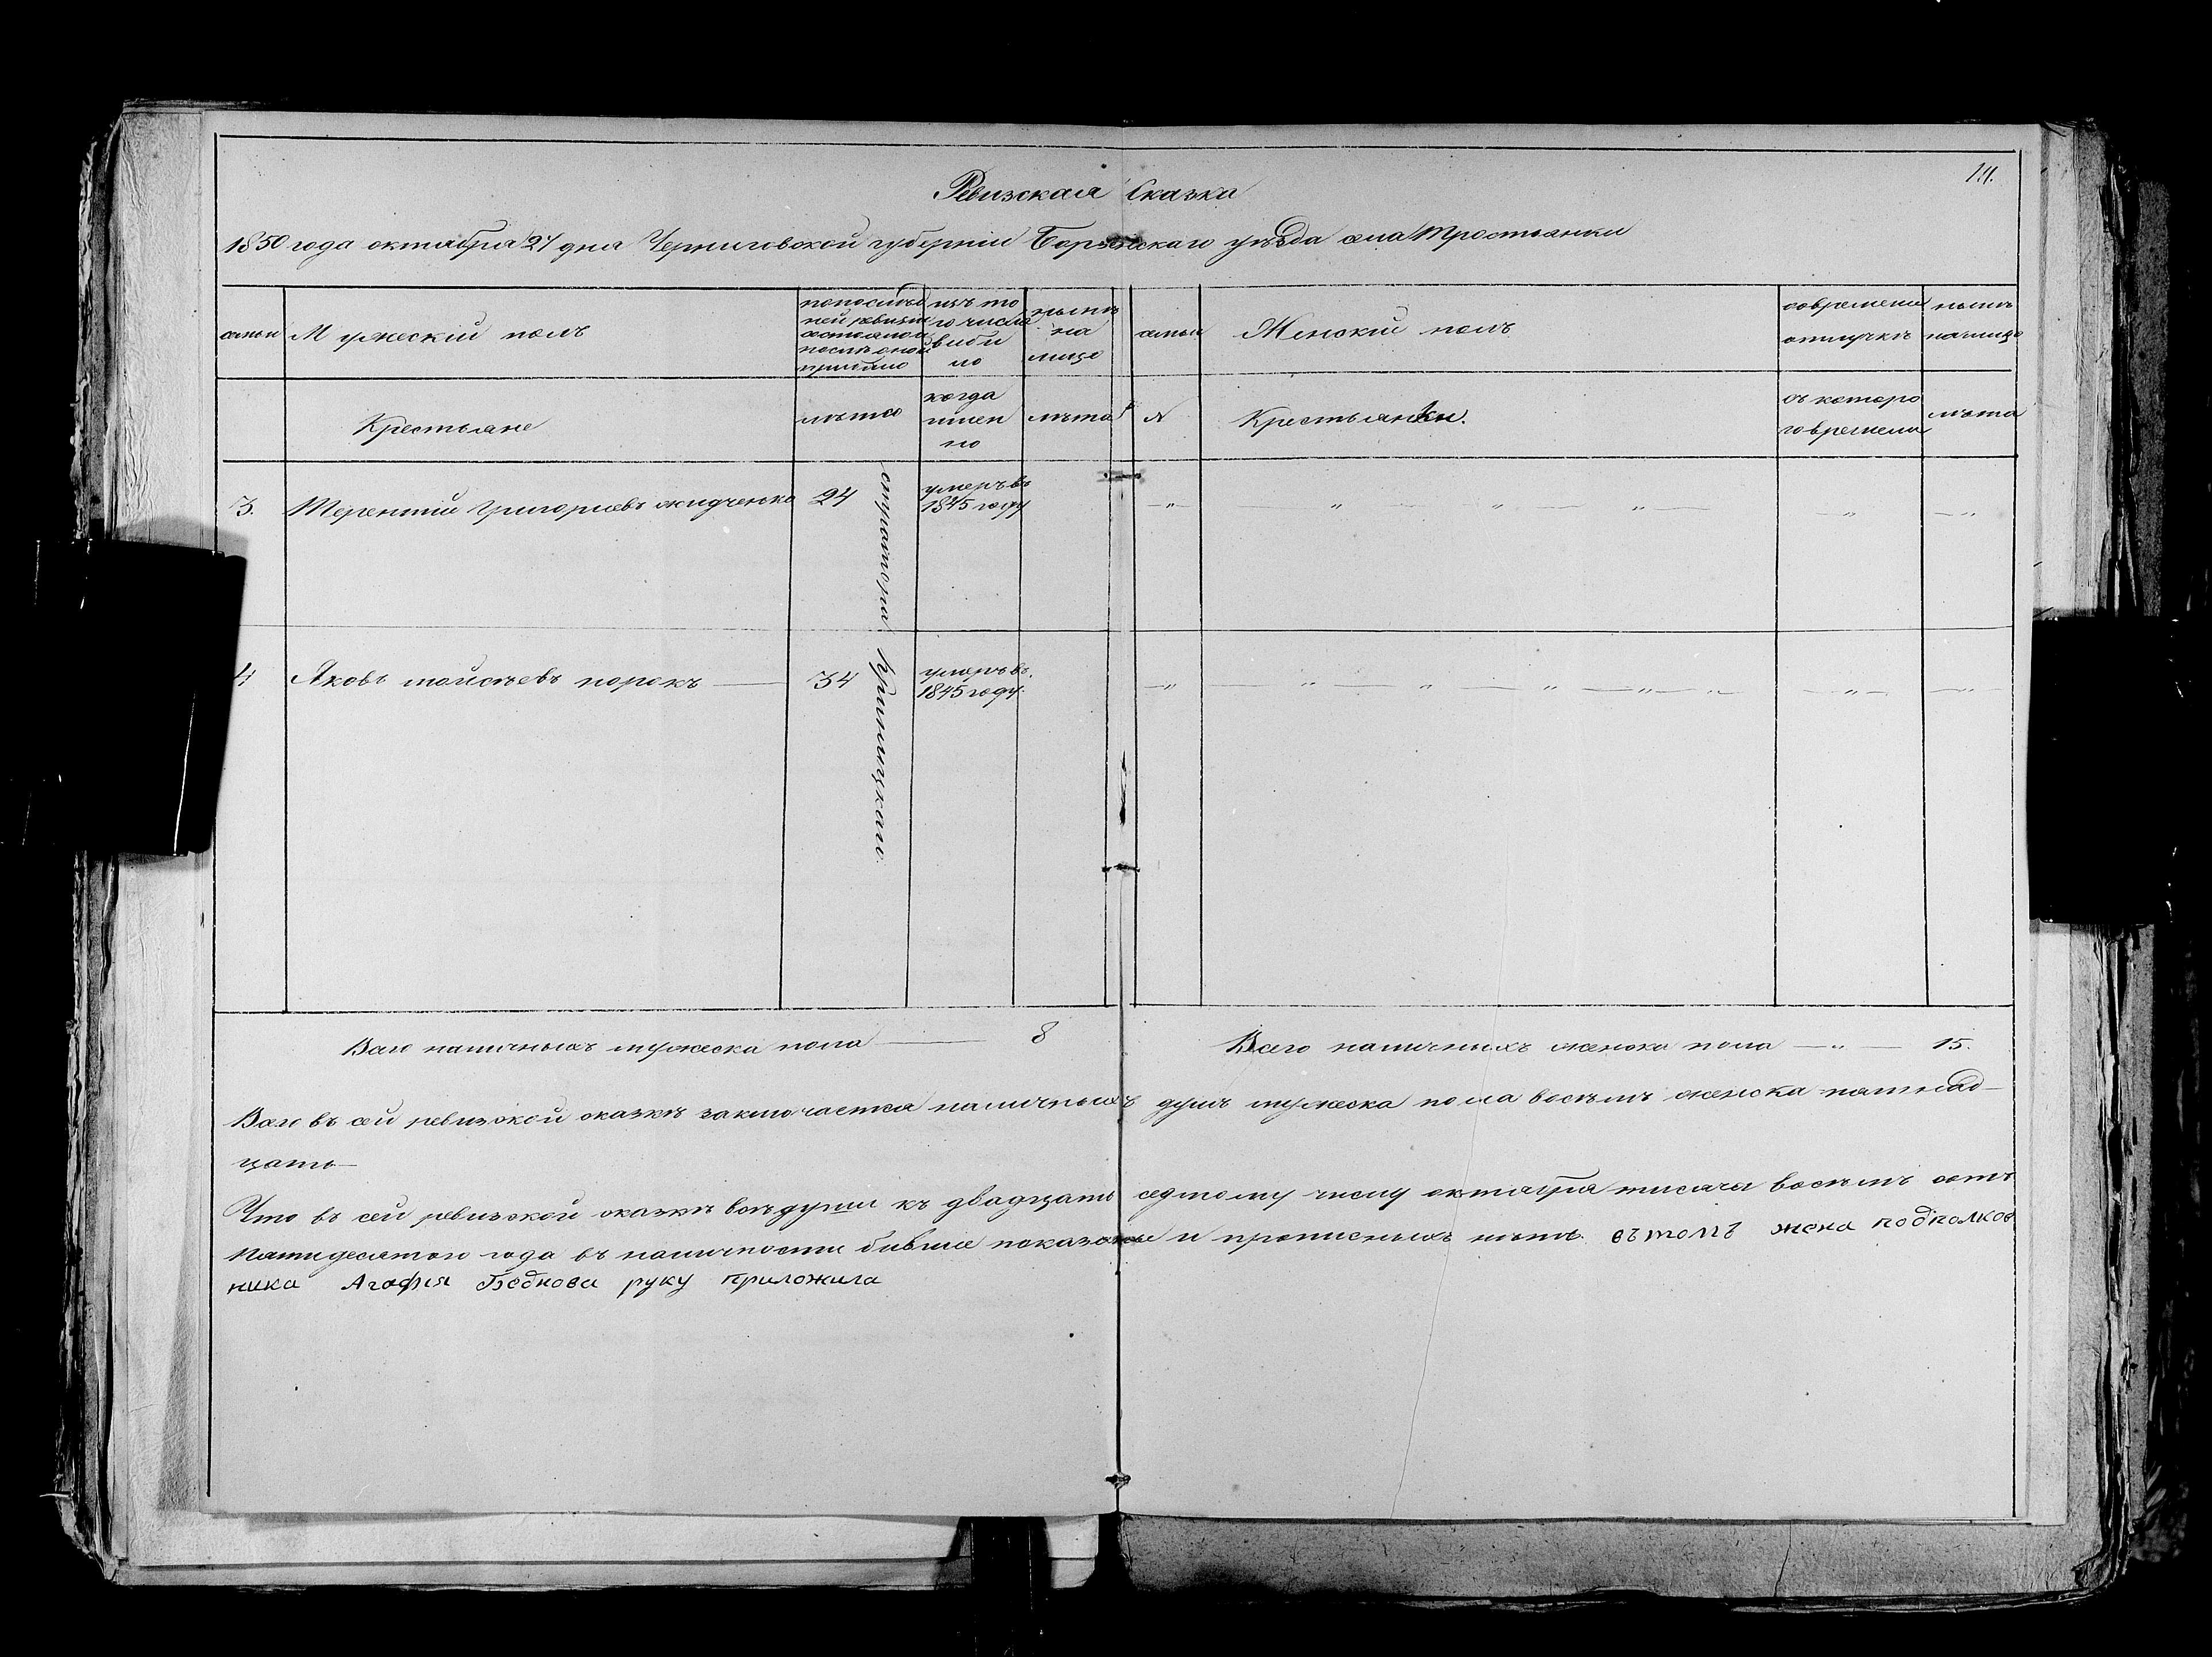 14.
Ревизская Сказка
1850 года октября 27 дня Черниговской губернiи Борзенскаго уѣзда села Тростьянки
семьи
Мужескiй полъ
попослѣд
ней ревизiи
состояло и
послѣ оной
прибыло
изъ то
го числа
выбы
ло
нынѣ
на
лицо
семьи
Женскiй полъ
современи
отлучкѣ
нынѣ
налицо
Крестьяне
лѣта
когда
имен
но
лѣта
№
Крестьянки.
съ которо
го времени
лѣта
3. Терентiй Григорiевъ жидченко 24 умеръ въ
1845 году
4 Яковъ мойсѣевъ порокъ 34 умеръ въ.
1845 году.
Всего наличныхъ мужеска пола 8
Всего наличныхъ женска пола 15.
Всего въ сей ревизской сказкѣ заключается наличныхъ душъ мужеска пола восѣмъ женска пятнад-
цать
Что въ сей ревизской сказкѣ всѣ души къ двадцать седмому числу октября тисяча восѣмъ сотъ
пятидесятого года въ наличности бывшiе показаны и прописныхъ нѣтъ. въ томъ жена подполков
ника Агафия Беднова руку приложила